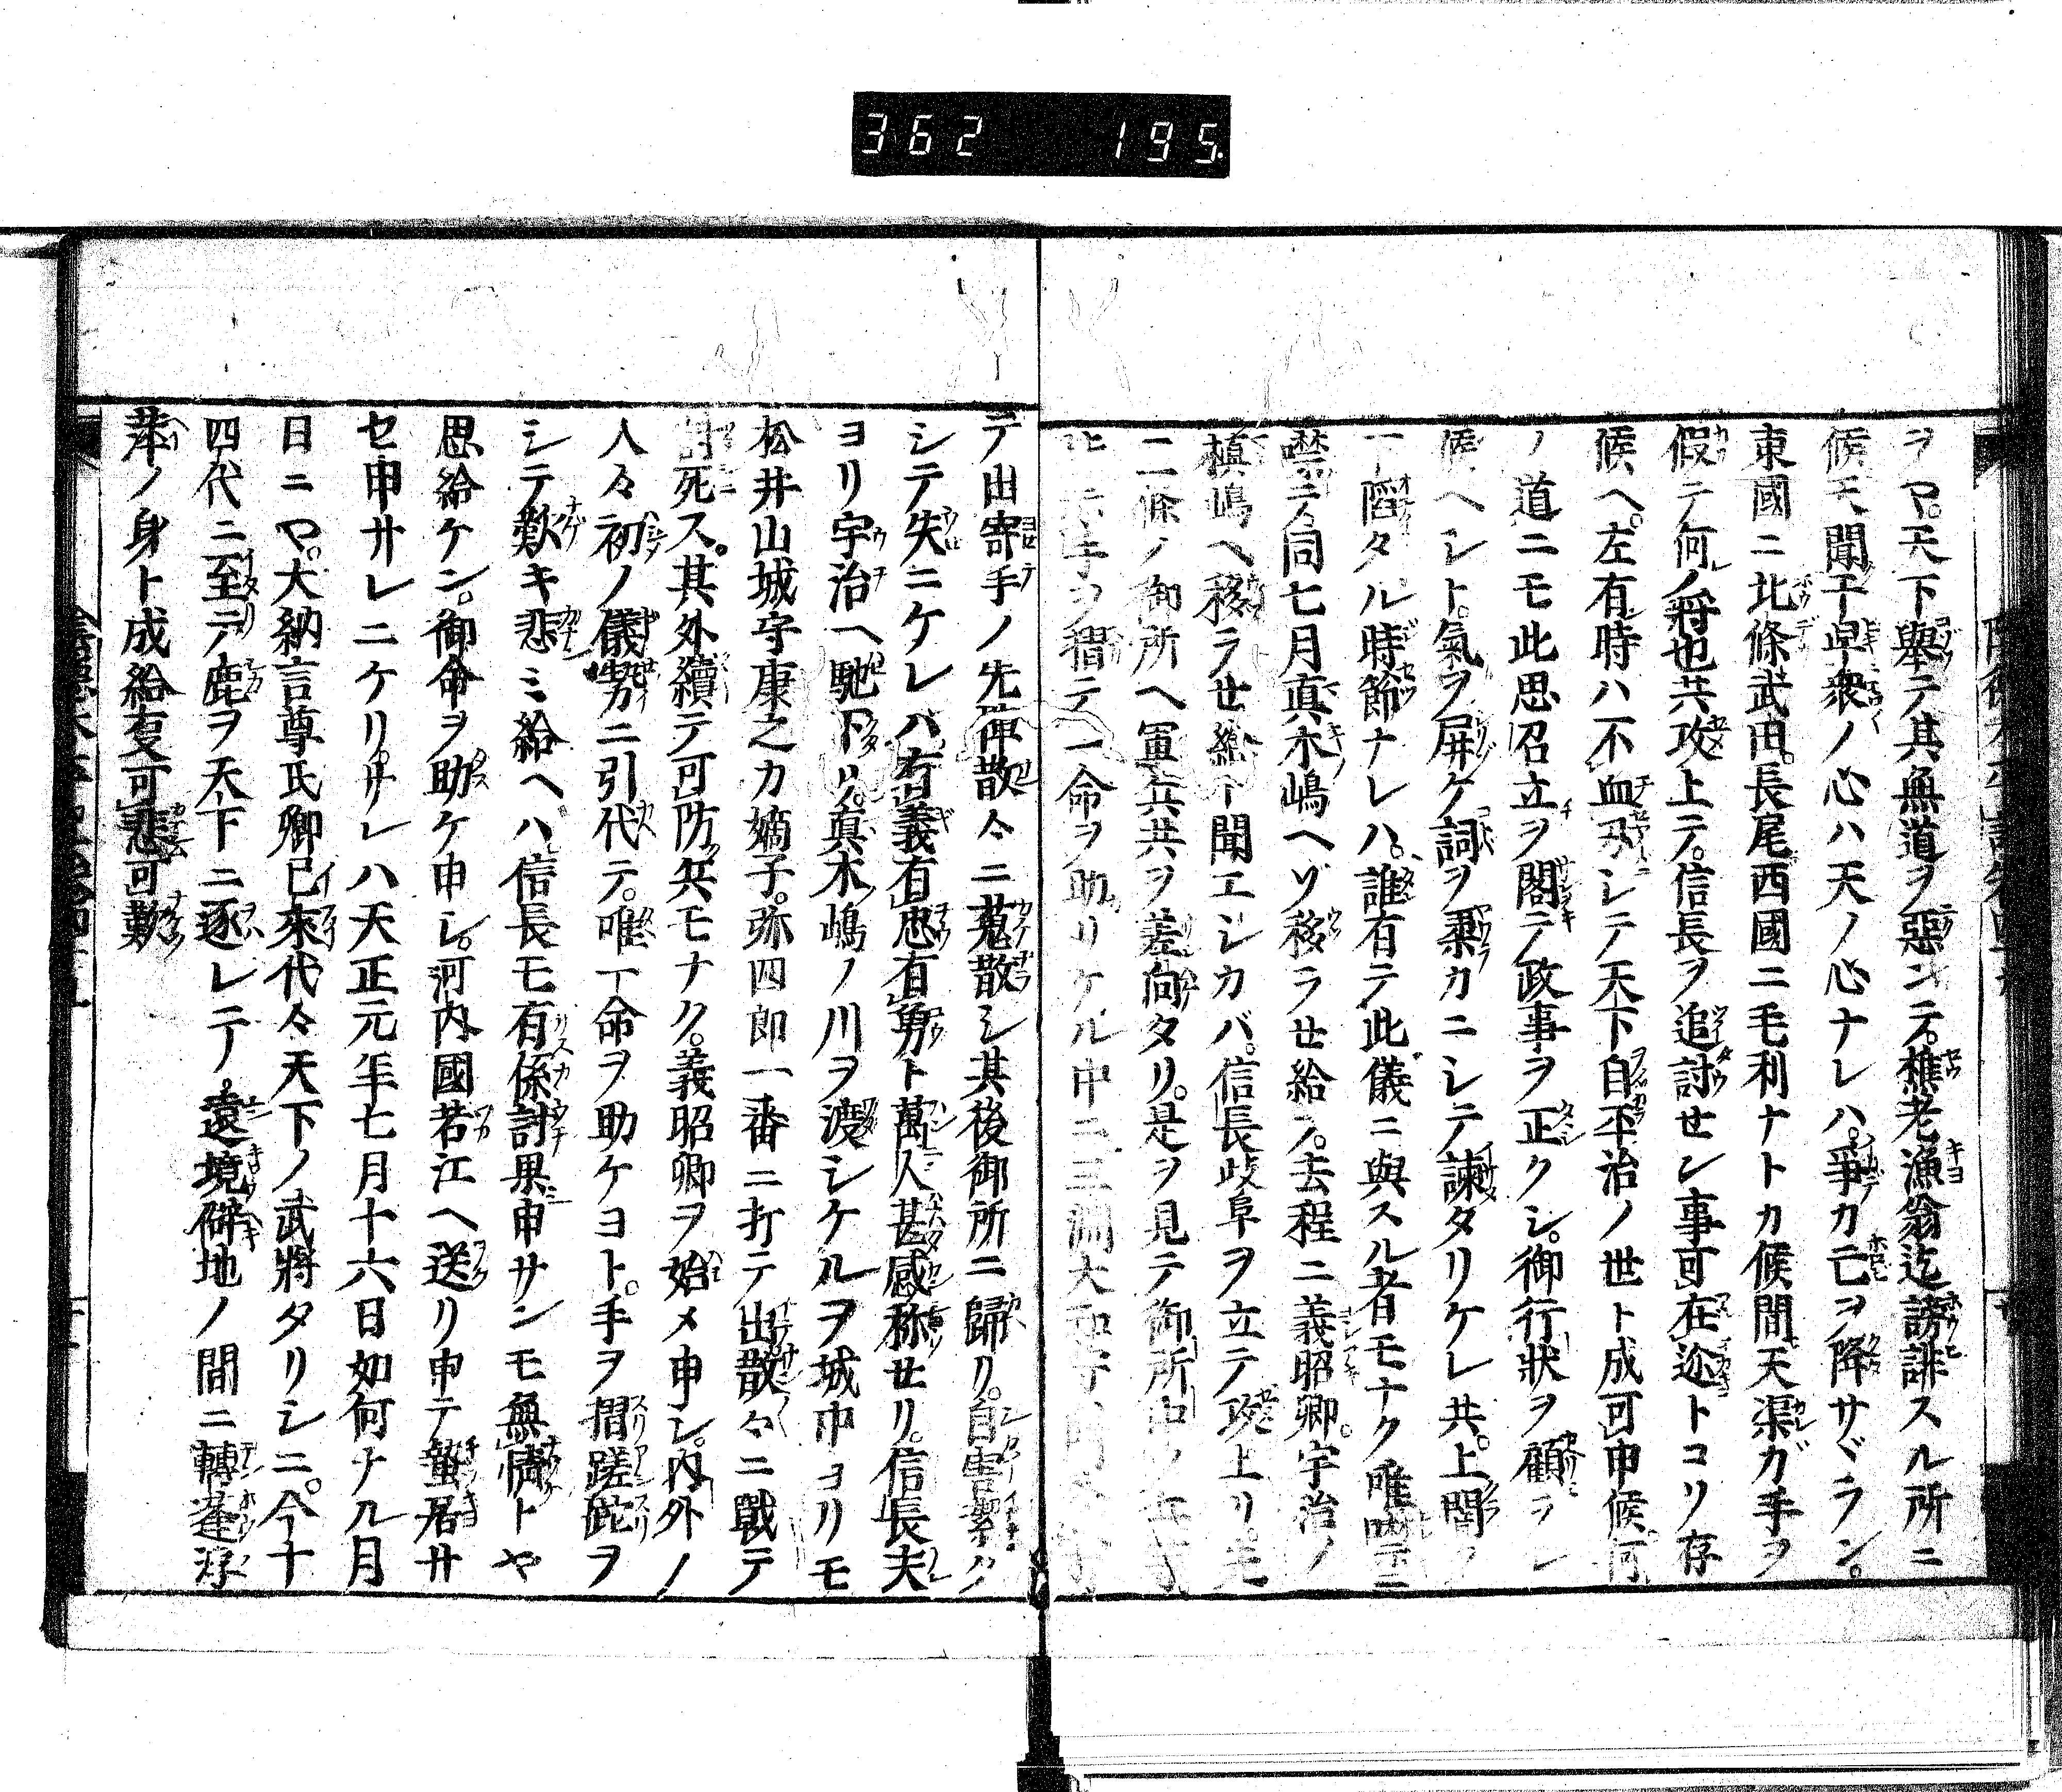 362 195.
ヲヤ。天下擧テ其無道ヲ惡ンテ。樵老漁翁迄謗誹スル所ニ
候モ聞干卑衆ノ心ハ天ノ心ナレハ。爭カ亡ヲ降サヾラン。
東國ニ北條武田。長尾西國ニ毛利ナトカ候間天渠ガ手ヲ
假テ何ノ將也共攻上テ。信長ヲ追討セン事可在迩トコリ存
候ヘ。左有時ハ不血刃シテ天下自平治ノ世ト成可申候何
ノ道ニモ此思召立ヲ閣テ政事ヲ正クシ。御行狀ヲ顧ラレ
候ヘシト。氣ヲ屏ケ詞ヲ柔カニシテ諫タリケレ共。上聞ノ
下滔タル時節ナレハ。誰有テ此儀ニ與スル者モナク唯
同七月真木嶋ヘゾ移ラせ給フ。去程ニ義昭卿。宇治ノ
槙嶋ヘ移ラせ給ト聞エシカバ。信長岐阜ヲ立テ攻上リ。先
二條ノ御所ヘ軍兵共ヲ差向タリ。是ヲ見テ御所中ノ
手ヲ摺テ一命ヲ助リケル中ニ三淵大和守
テ出寄手ノ先陣散々ニ蒐散シ其後御所ニ歸リ。自害
シテ失ニケレバ有義有忠有勇ト萬人甚感称せリ。信長夫
ヨリ宇治ヘ馳下リ。真木嶋ノ川ヲ渡シケルヲ城中ヨリモ
松井山城守康之カ嫡子。弥四郎一番ニ打テ出散々ニ戰テ
討死ス。其外續テ可防兵モナク。義昭卿ヲ始メ申シ。内外ノ
人々初ノ儀勢ニ引代テ。唯一命ヲ助ケヨト。手ヲ摺蹉跎ヲ
シテ歎キ悲ミ給ヘハ信長モ有係討果申サンモ無情トヤ
思給ケン。御命ヲ助ケ申シ。河内國若江ヘ送リ申テ蟄居サ
セ申サレニケリ。サレハ天正元年七月十六日如何ナル月
日ニヤ。大納言尊氏卿已來代々天下ノ武將タリシニ。今十
四代ニ至テノ鹿ヲ天下ニ逐レテ。遠境僻地ノ間ニ轉蓬浮
萍ノ身ト成給叓可悲可歎